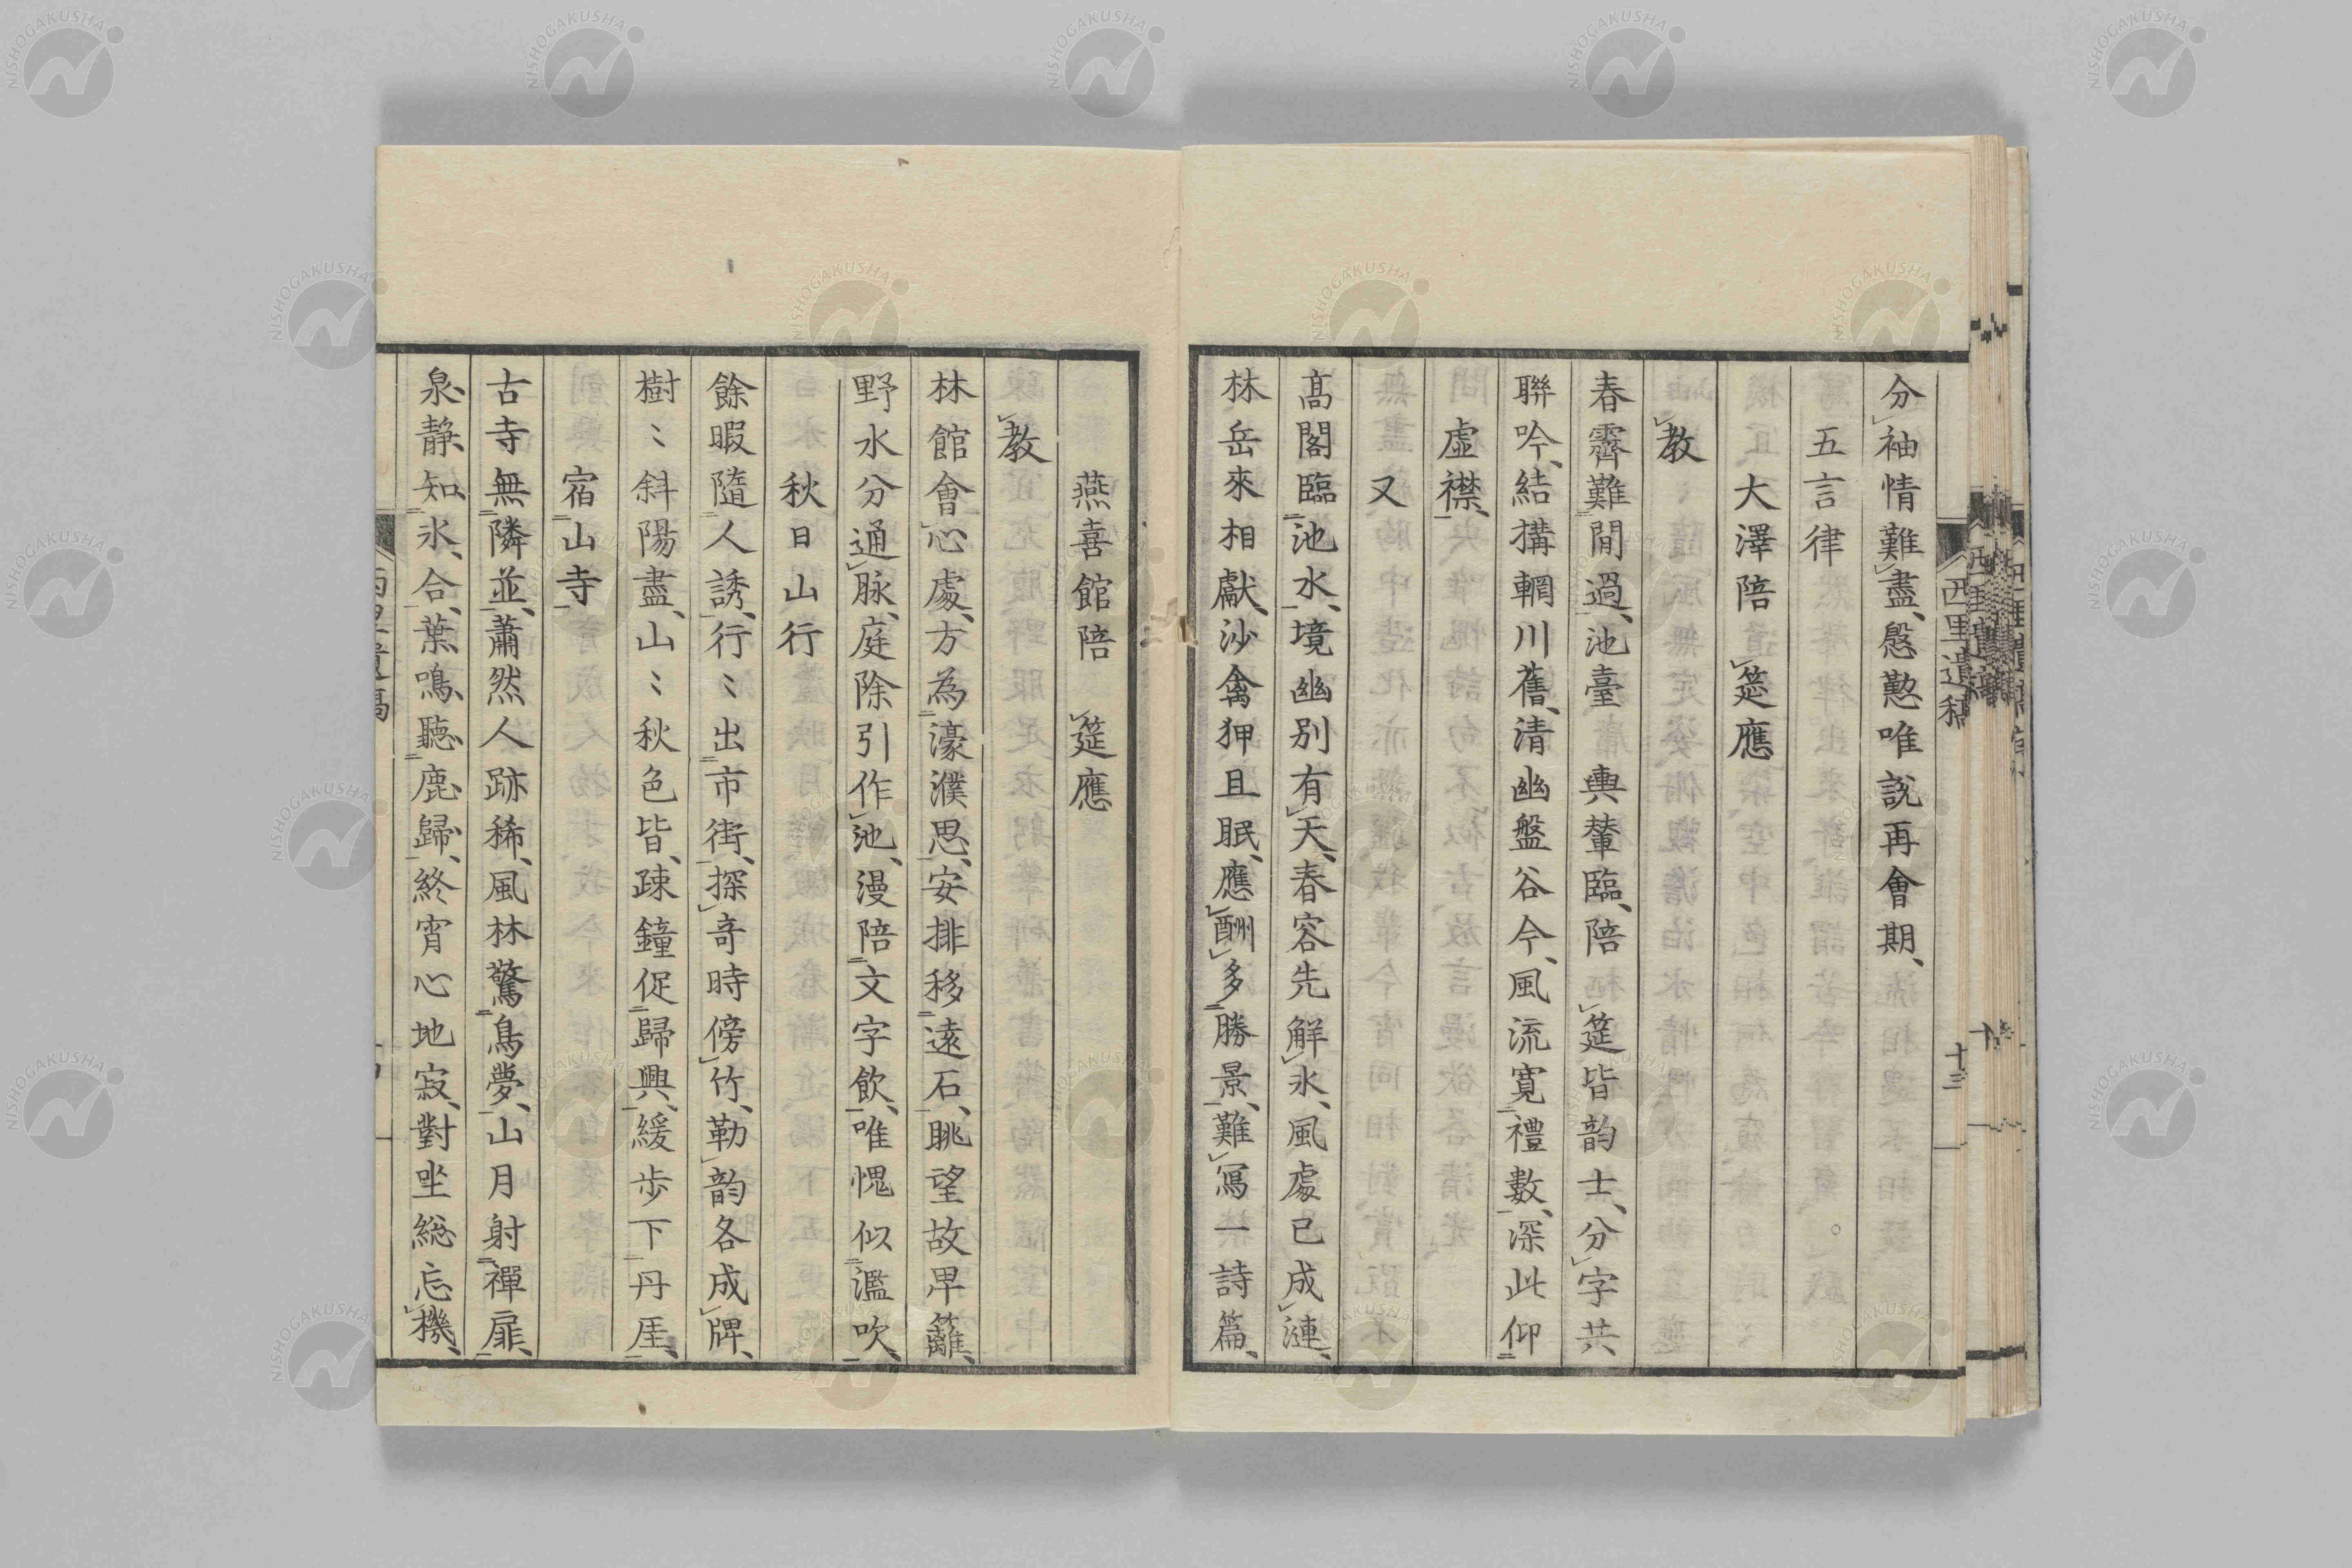 分袖情難盡、慇懃唯說再會期、
五言律
大澤陪　筵應
教
春霽難閒過、池臺　輿輦臨、陪　筵皆韵士、分字共
聯吟、結搆輞川舊、清幽盤谷今、風流寛禮數、深此仰
虛襟、
又
髙閣臨池水、境幽別有天、春容先解氷、風處已成漣、
林岳來相獻、沙禽狎且眠、應酬多勝景、難寫一詩篇、
西里遺稿
十三
燕喜館陪　筵應
教
林館會心處、方為濠濮思、安排移遠石、眺望故卑籬、
野水分通脉、庭除引作池、漫陪文字飲、唯愧似濫吹、
秋日山行
餘暇隨人誘、行〻出市街、探竒時傍竹、勒韵各成牌、
樹〻斜陽盡、山〻秋色皆、疎鐘促歸興、緩步下丹厓、
宿山寺
古寺無隣並、蕭然人跡稀、風林驚鳥夢、山月射禪扉、
泉静知氷合、葉鳴聽鹿歸、終宵心地寂、對坐総忘機、
NISHOGAKUSHA